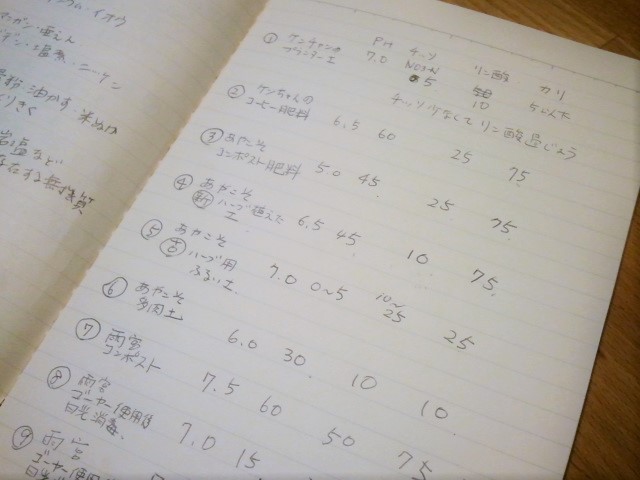 イオウ
マンガン・亜えん
・塩素・ニッケ
油かす・米ぬか
岩塩など
存在する無機質
PH チッソ リン酸 カリ
NO3-N
① ケンチャンの プランター土 7.0 5 10 5以下
チッソ少なくて リン酸
② ケンちゃんの コーヒー肥料 6.5 60 25 75
③ あやこそ コンポスト肥料 5.0 45 25 75
④ あやこそ 新 ハーブ植えた土 6.5 45 10 75
⑤ あやこそ 古 ハーブ用 ふるい土 7.0 0~5 10~25 25
⑥ あやこそ 多肉土 6.0 30 10 10
⑦ 雨宮 コンポスト 7.5 60 50 75
⑧ 雨宮 ゴーヤー使用後 日光消毒、 7.0 15
⑨ 雨宮 ゴーヤー使用